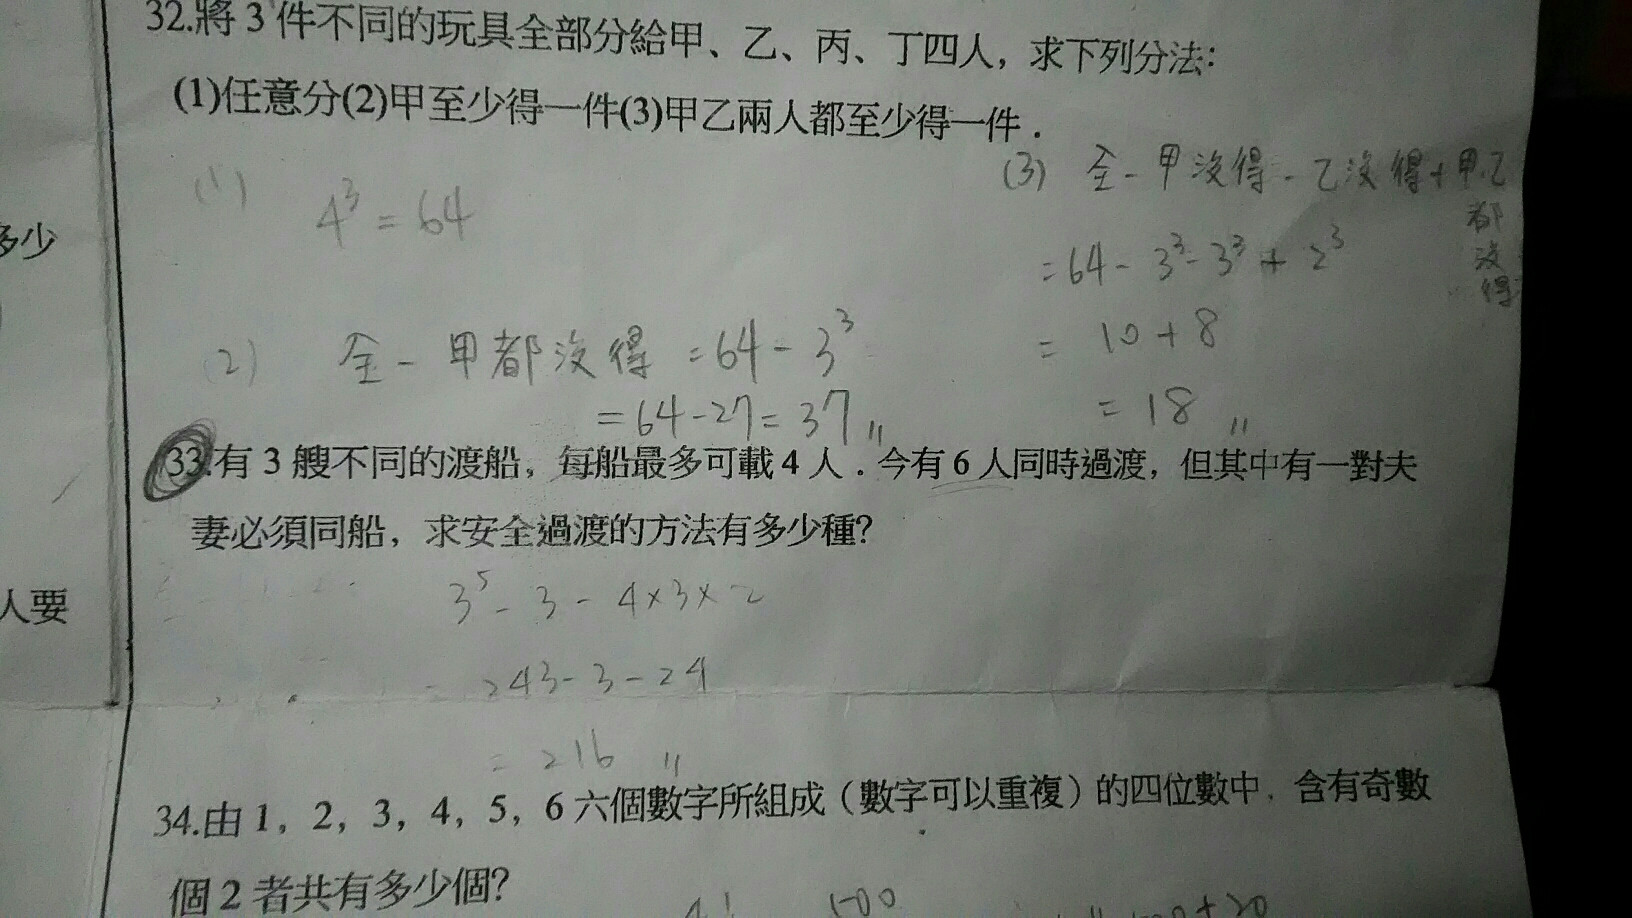 32.將3件不同的玩具全部分給甲、乙、丙、丁四人，求下列分法：
(1)任意分(2)甲至少得一件(3)甲乙兩人都至少得一件．
(1) 4³=64
(2) 全-甲都沒得=64-3³
=64-27=37〃
(3) 全-甲沒得-乙沒得+甲乙
都
沒
得
=64-3³-3³+2³
=10+8
=18〃
多少
33.有3艘不同的渡船，每船最多可載4人．今有6人同時過渡，但其中有一對夫
妻必須同船，求安全過渡的方法有多少種?
3⁵-3-4×3×2
=243-3-24
=216〃
人要
34.由1，2，3，4，5，6六個數字所組成（數字可以重複）的四位數中，含有奇數
個2者共有多少個?